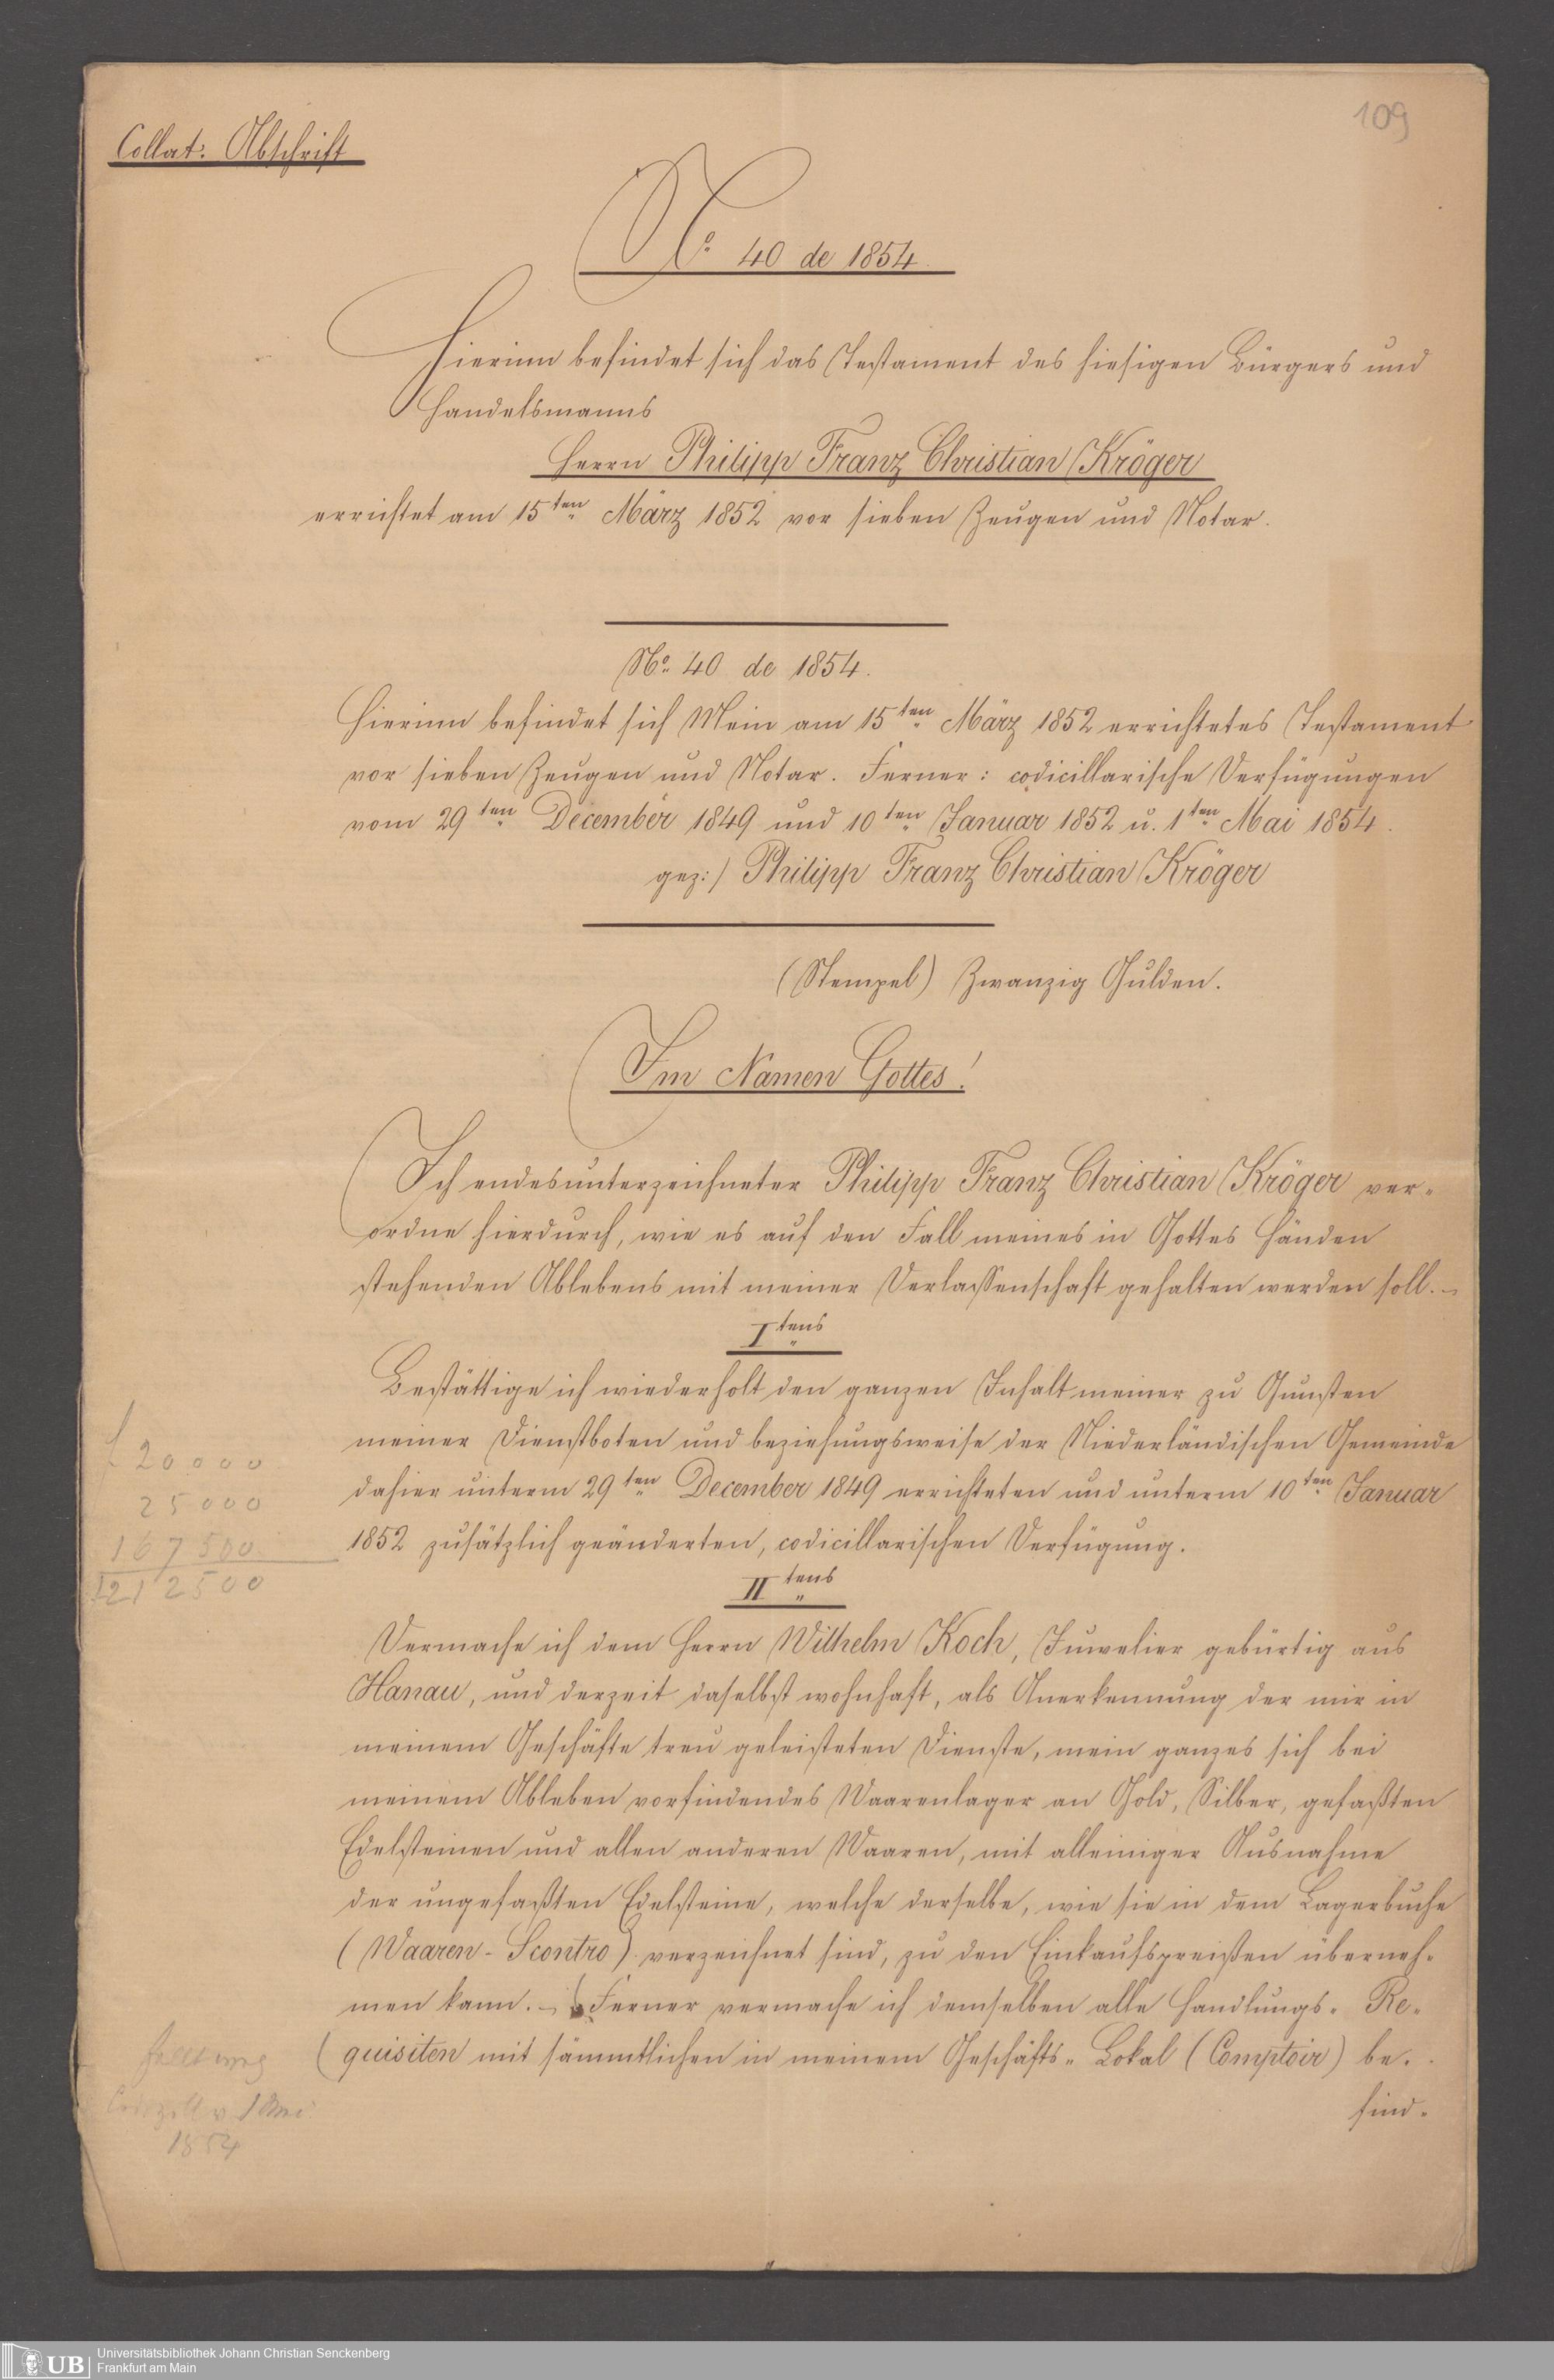 109
Collat: Abschrift
No. 40 de 1854.
Hierinn befindet sich das Testament des hiesigen Bürgers und
Handelsmanns
Herrn Philipp Franz Christian Kröger
errichtet am 15ten März 1852 vor sieben Zeugen und Notar.
No. 40 de 1854.
Hierinn befindet sich Mein am 15ten März 1852 errichtetes Testament
vor sieben Zeugen und Notar. Ferner: codicillarische Verfügungen
vom 29ten December 1849 und 10ten Januar 1852 u. 1ten Mai 1854.
gez:) Philipp Franz Christian Kröger
(Stempel) Zwanzig Gulden.
Im Namen Gottes!
Ich endesunterzeichneter Philipp Franz Christian Kröger ver-
ordne hierdurch, wie es auf den Fall meines in Gottes Händen
stehenden Ablebens mit meiner Verlassenschaft gehalten werden soll. –
Itens
Bestättige ich wiederholt den ganzen Inhalt meiner zu Gunsten
meiner Dienstboten und beziehungsweise der Niederländischen Gemeinde
dahier unterm 29ten December 1849 errichteten und unterm 10ten Januar
1852 zusätzlich geänderten, codicillarischen Verfügung.
f 20000
25000
167500
212500
IItens
Vermache ich dem Herrn Wilhelm Koch, Juwelier gebürtig aus
Hanau, und derzeit daselbst wohnhaft, als Anerkennung der mir in
meinem Geschäfte treu geleisteten Dienste, mein ganzes sich bei
meinem Ableben vorfindendes Waarenlager an Gold, Silber, gefaßten
Edelsteinen und allen anderen Waaren, mit alleiniger Ausnahme
der ungefaßten Edelsteine, welche derselbe, wie sie in dem Lagerbuche
(Waaren-Scontro) verzeichnet sind, zu den Einkaufspreißen überneh-
men kann. – Ferner vermache ich demselben alle Handlungs-Re-
quisiten mit sämmtlichen in meinem Geschäfts-Lokal (Comptoir) be-
find-
fällt weg
Codizill v. 1 Mai
1854
UB
Universitätsbibliothek Johann Christian Senckenberg
Frankfurt am Main